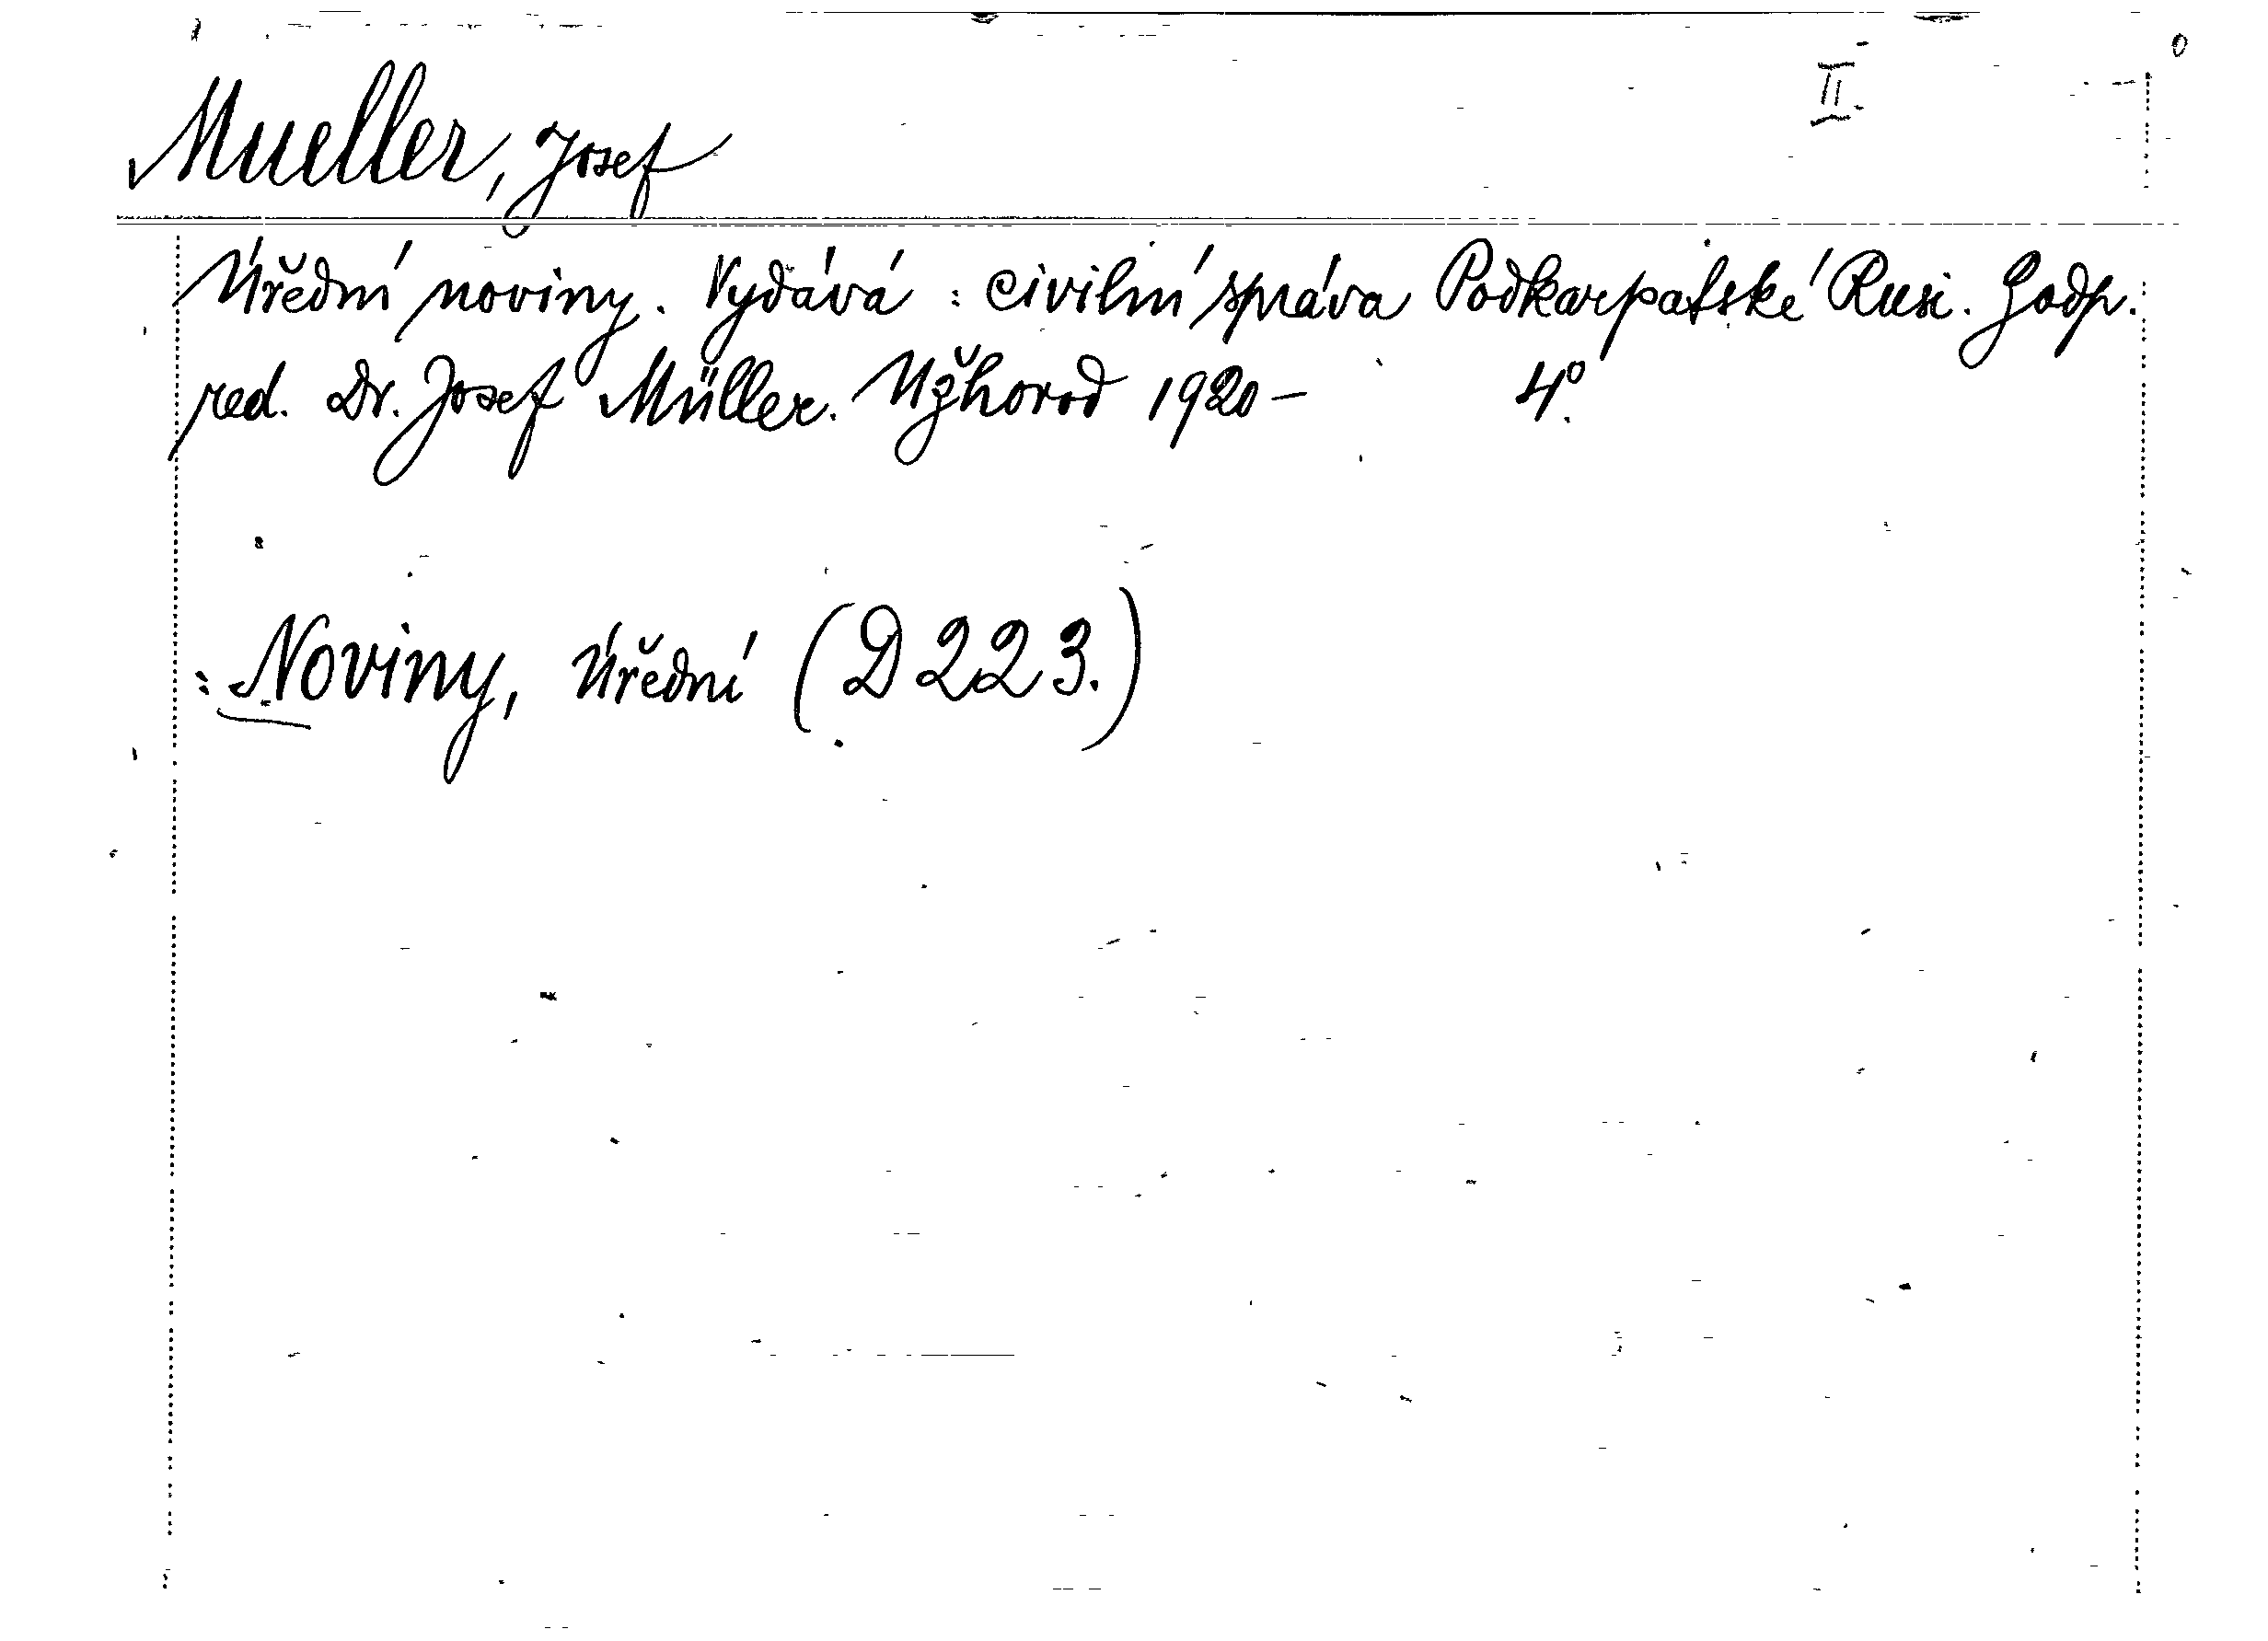 II.
Mueller, Josef
Úřední noviny. Vydává: civilní správa Podkarpatské Rusi. Zodp.
red. Dr. Josef Müller. Užhorod 1920 - 4°.
: Noviny, Úřední (D 223.)